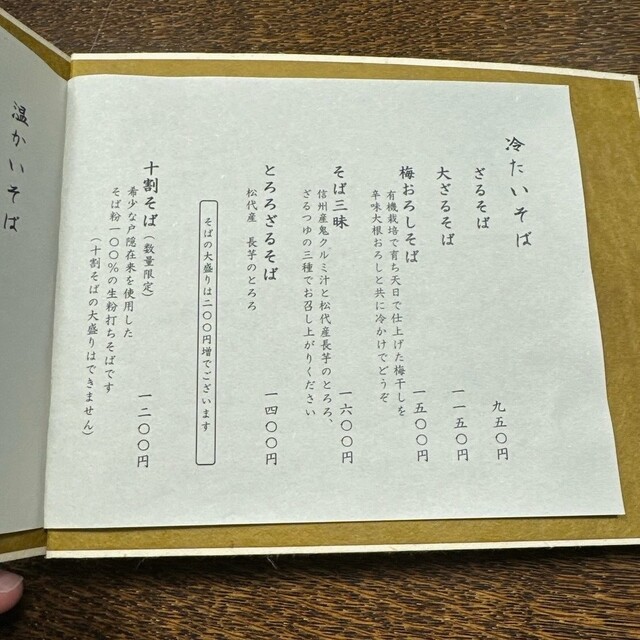 冷たいそば
ざるそば 九五〇円
大ざるそば 一一五〇円
梅おろしそば 一五〇〇円
有機栽培で育ち天日で仕上げた梅干しを
辛味大根おろしと共に冷かけでどうぞ
そば三昧 一六〇〇円
信州産鬼クルミ汁と松代産長芋のとろろ、
ざるつゆの三種でお召し上がりください
とろろざるそば 一四〇〇円
松代産 長芋のとろろ
そばの大盛りは二〇〇円増でございます
十割そば（数量限定） 一二〇〇円
希少な戸隠在来を使用した
そば粉一〇〇％の生粉打ちそばです
（十割そばの大盛りはできません）
温かいそば